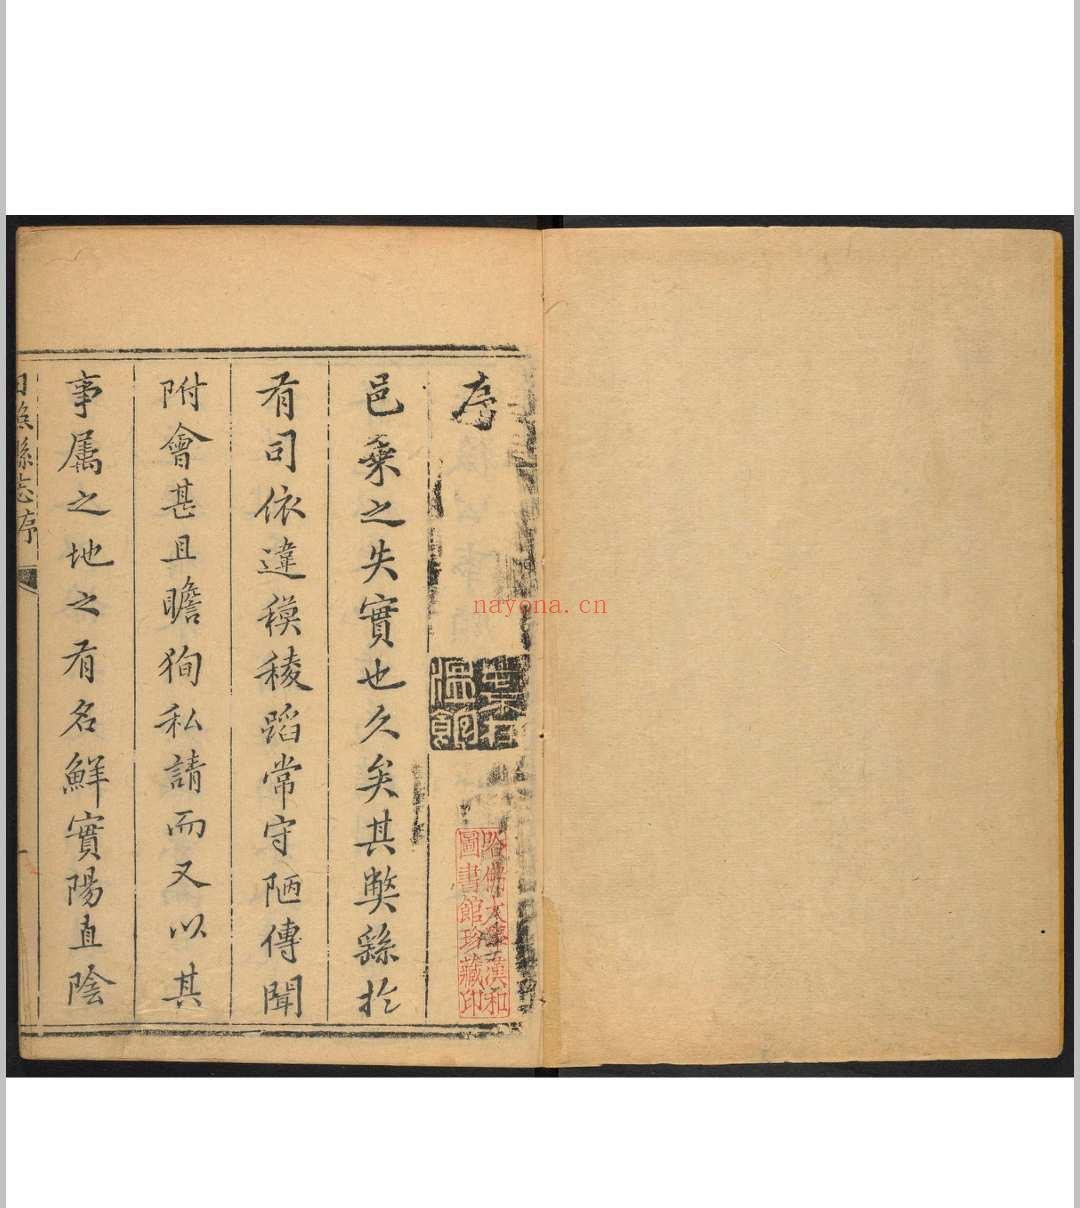 序
邑乗之失實也久矣其獘繇扵
有司依違模稜蹈常守陋傳聞
附會甚且瞻狥私請而又以其
事属之地之有名鮮實陽直陰
日照縣志序
哈佛大學漢和
圖書館珍藏印
nayona.cn